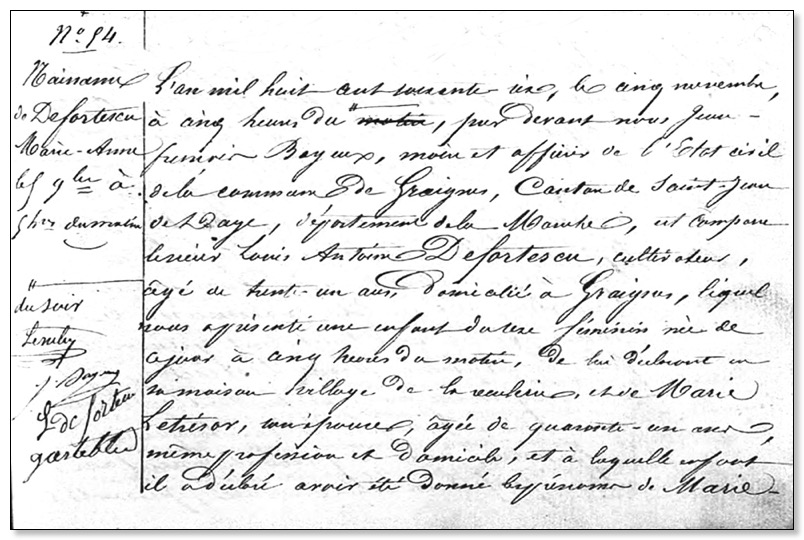 N° 54.
Naissance
de Defortescu
Marie-Anne
le 5 9bre à
5 hres du matin
"
du soir
Lerully
J. Bayeux
L de fortescu
gastebled
L'an mil huit cent soixante six, le cinq novembre,
à cinq heures du matin, par devant nous Jean-
françois Bayeux, maire et officier de l'Etat civil
de la commune de Graignes, Canton de Saint-Jean
de Daye, département de la Manche, est comparu
le sieur Louis Antoine Defortescu, cultivateur,
âgé de trente-un ans, domicilié à Graignes, lequel
nous a présenté une enfant du sexe féminin née de
ce jour à cinq heures du matin, de lui déclarant en
sa maison village de la et de Marie
Letrésor, son épouse, âgée de quarante-un ans,
même profession et domicile, et à laquelle enfant
il a déclaré avoir été donné les prénoms de Marie-